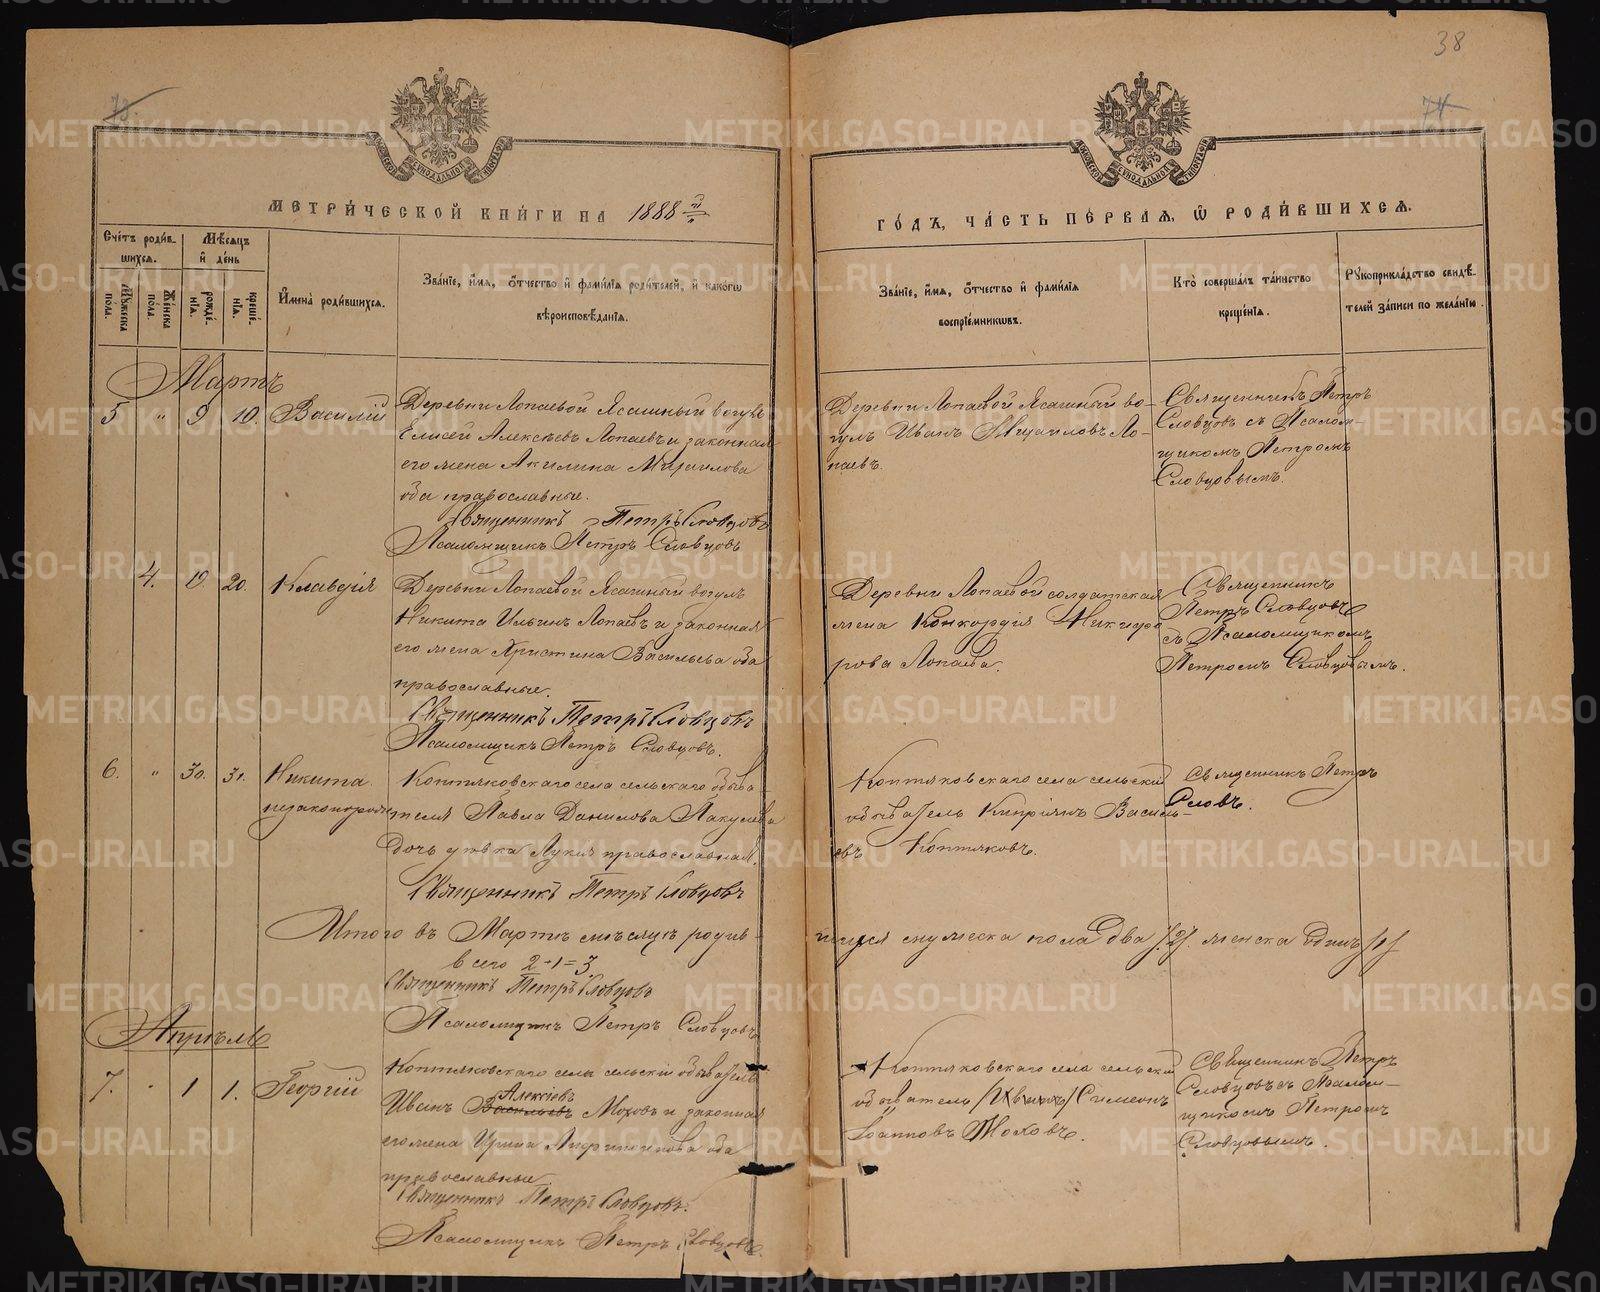 38
73.
74
МЕТРИ́ЧЕСКОЙ КНИ́ГИ НА 1888
ГО́ДЪ, ЧА́СТЬ ПЕ́РВАЯ, Ѿ РОДИ́ВШИХСЯ.
Сче́тъ роди́в-
шихся.
Му́жеска по́ла.
Же́нска по́ла.
Мѣ́сяцъ
и де́нь
рожде́-
нїя.
креще́-
нїя.
И҆мена̀ роди́вшихся.
Зва́нїе, и҆́мя, ѻ҆́тчество и҆ фами́лїя роди́телей, и҆ како́гѡ
вѣроисповѣ́данїя.
Зва́нїе, и҆́мя, ѻ҆́тчество и҆ фами́лїя
воспрїе́мникѡвъ.
Кто̀ соверша́лъ та́инство
креще́нїя.
Рꙋкоприкла́дство свидѣ́-
телей за́писи по жела́нїю.
Мартъ
5 " 9 10. Василій
Деревни Лопаевой Ясашный вогулъ
Елисей Алексѣевъ Лопаевъ и законная
его жена Акилина Михайлова
оба православные.
Священникъ Петръ Словцовъ
Псаломщикъ Петръ Словцовъ
Деревни Лопаевой Ясашный во-
гулъ Иванъ Михаиловъ Ло-
паевъ.
Священникъ Петръ
Словцовъ съ Псалом-
щикомъ Петромъ
Словцовымъ.
4. 19. 20. Клавдія
Деревни Лопаевой Ясашный вогулъ
Никита Ильинъ Лопаевъ и законная
его жена Христина Васильева оба
православные.
Священникъ Петръ Словцовъ
Псаломщикъ Петръ Словцовъ.
Деревни Лопаевой солдатская
жена Конкордия Никифо
рова Лопаева.
Священникъ
Петръ Словцовъ
съ Псаломщикомъ
Петромъ Словцовымъ.
6. " 30. 31. Никита
незаконнорожд
Коптяковскаго села сельскаго обыва-
теля Павла Данилова Пакулева
дочь дѣвка Лукия православная.
Священникъ Петръ Словцовъ
Коптяковскаго села сельский
обыватель Киприянъ Василь-
евъ Коптяковъ.
Священникъ Петръ
Словъ.
Итого въ Мартѣ мѣсяцѣ родив-
шихся мужеска пола два /2/ женска одинъ /1/
всего 2+1=3
Священникъ Петръ Словцовъ
Псаломщикъ Петръ Словцовъ
Апрѣль
7. " 1 1. Георгій
Коптяковскаго села сельскій обыватель
Алексіевъ
Иванъ Васильевъ Моховъ и законная
его жена Ирина оба
православные.
Священникъ Петръ Словцовъ.
Псаломщикъ Петръ Словцовъ.
Коптяковскаго села сельский
обыватель /Иванъ/ Симеонъ
Іоанновъ Моховъ.
Священникъ Петръ
Словцовъ съ Псалом-
щикомъ Петромъ
Словцовымъ.
METRIKI.GASO-URAL.RU